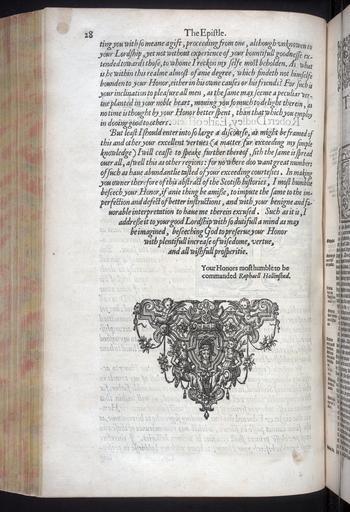 28
The Epistle.
ting you with so meane a gift, proceeding from one, although unknowen to
your Lordship, yet not without experience of your bountifull goodnesse ex-
tended towards those, to whome I reckon my selfe most beholden. As what
is he within this realme almost of anie degree, which findeth not himselfe
bounden to your Honor, either in his owne causes or his friends? For such is
your inclination to pleasure all men, as the same may seeme a peculiar ver-
tue planted in your noble heart, mooving you so much to delight therein, as
no time is thought by your Honor better spent, than that which you employ
in dooing good to others.
But least I should enter into so large a discourse, as might be framed of
this and other your excellent vertues (a matter far exceeding my simple
knowledge) I will cease to speake further thereof, sith the same is spred
over all, as well this as other regions: for no where doo want great numbers
of such as have abundantlie tasted of your exceeding courtesies. In making
you owner therefore of this abstract of the Scotish histories, I most humblie
beseech your Honor, if anie thing be amisse, to impute the same to the im-
perfection and defect of better instructions, and with your benigne and fa-
vorable interpretation to have me therein excused. Such as it is, I
addresse it to your good Lordship with so dutifull a mind as may
be imagined, beseeching God to preserve your Honor
with plentifull increase of wisedome, vertue,
and all wishfull prosperitie.
Your Honors most humble to be
commanded Raphaell Holinshed.